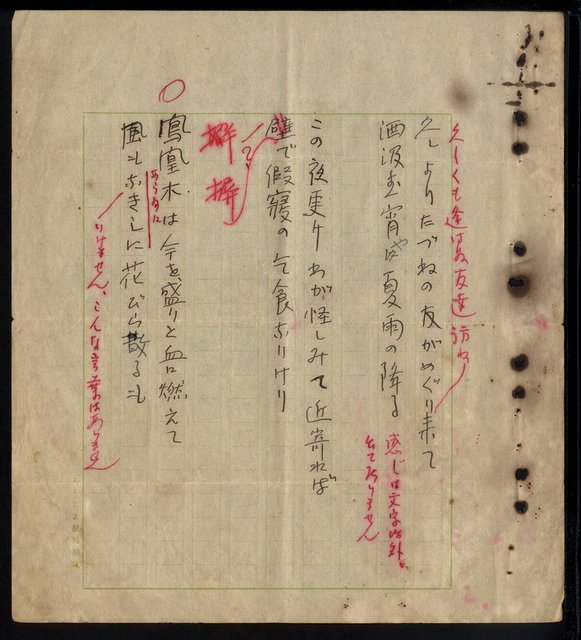 久しくも逢はぬ友達訪ね
久しよりたづねの友がめぐり来て
酒汲む宵や夏雨の降る
感じは文字以外に
出て居りません
この夜更けわが怪しみて近寄れば
壁で假寢の乞食なりけり
鳳凰木は今を盛りと白燃えて
あらぬに
風もなきに花びら散るも
いけません、こんな言葉はありません